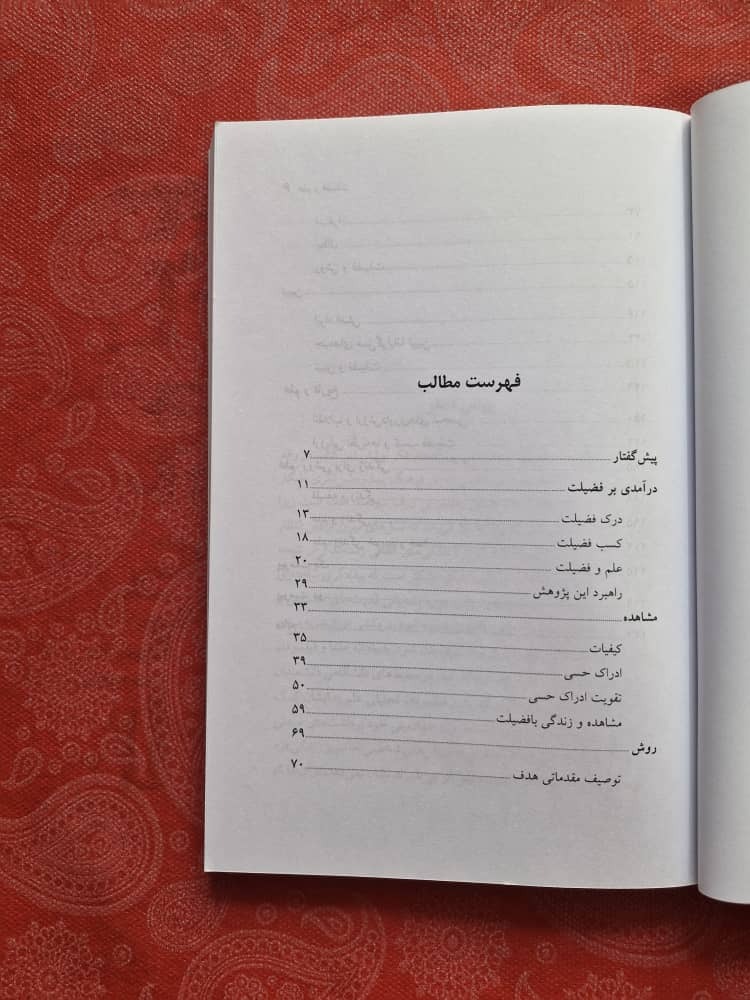 فهرست مطالب
پیش‌گفتار ........ ۷
درآمدی بر فضیلت ........ ۱۱
درک فضیلت ........ ۱۳
کسب فضیلت ........ ۱۸
علم و فضیلت ........ ۲۰
راهبرد این پژوهش ........ ۲۹
مشاهده ........ ۳۳
کیفیات ........ ۳۵
ادراک حسی ........ ۳۹
تقویت ادراک حسی ........ ۵۰
مشاهده و زندگی بافضیلت ........ ۵۹
روش ........ ۶۹
توصیف مقدماتی هدف ........ ۷۰